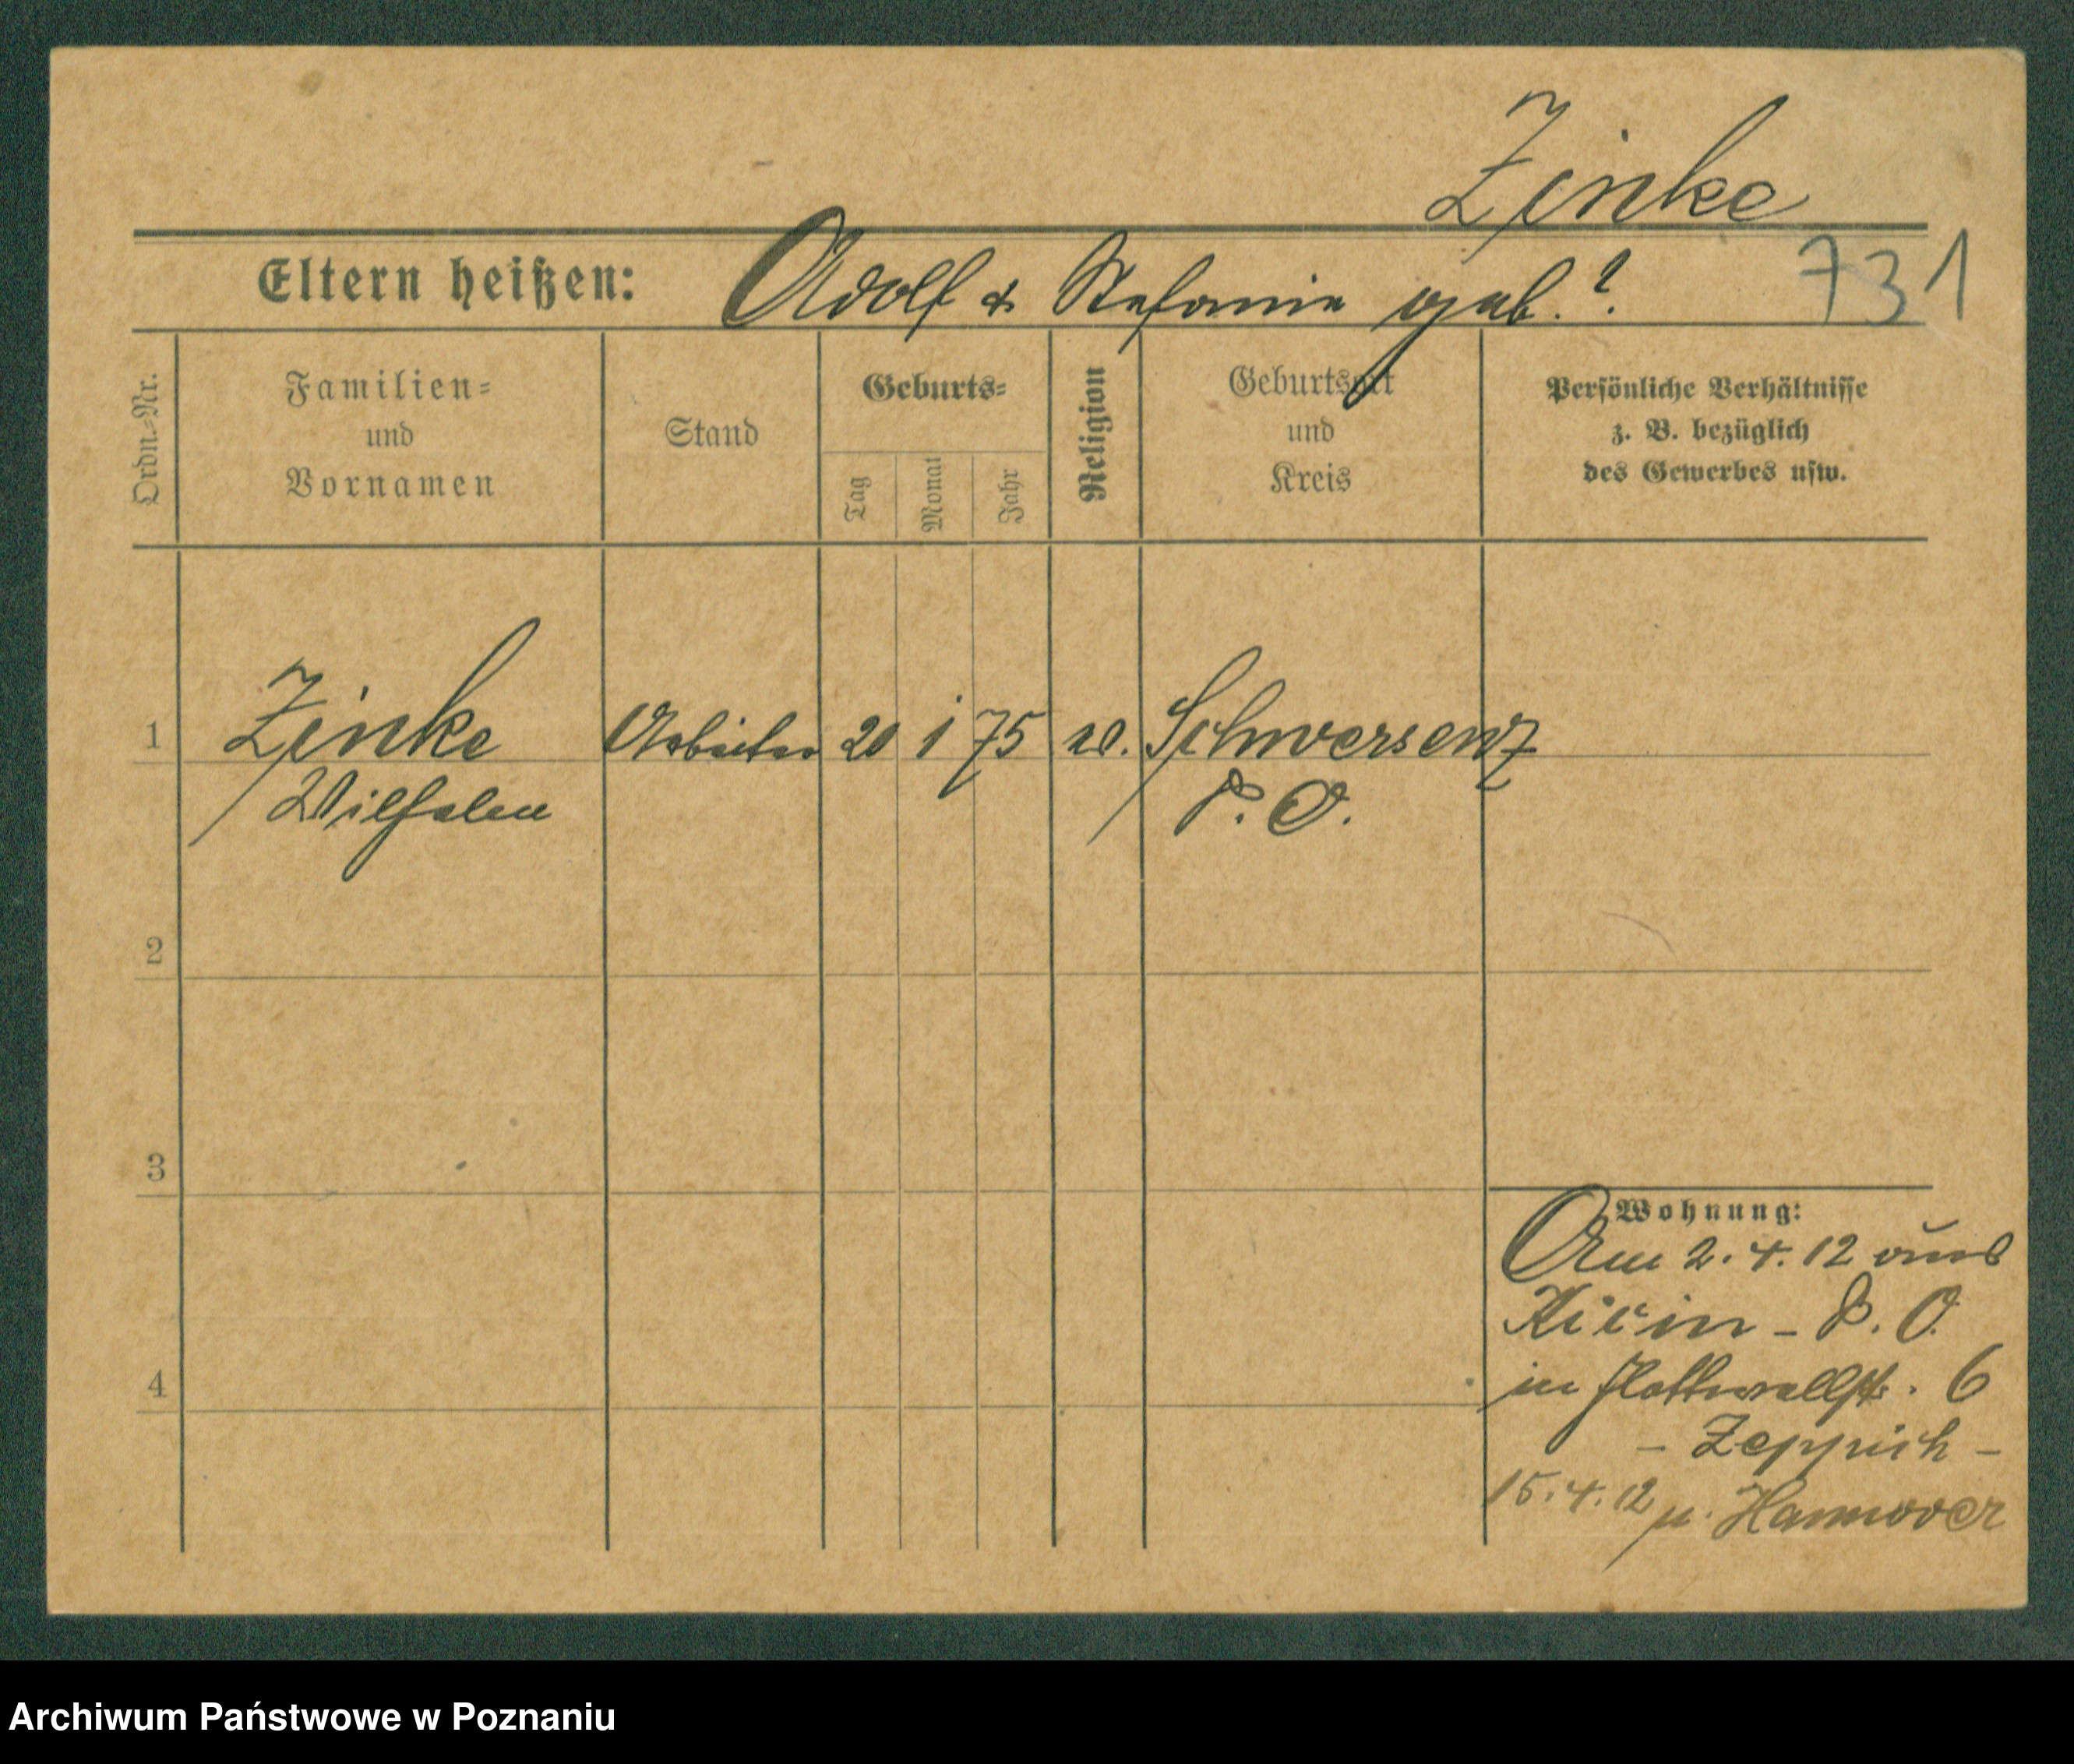 Zinke
Eltern heißen: Adolf & Stefanie geb. ?
731
Ordn.=Nr.
Familien=
und
Vornamen
Stand
Geburts=
Tag
Monat
Jahr
Religion
Geburtsort
und
Kreis
Persönliche Verhältnisse
z. B. bezüglich
des Gewerbes usw.
1 Zinke Arbeiter 20 1 75 Schwersenz
P. O.
2
3
4
Wohnung:
Am 2. 4. 12 aus
Kicin - P. O.
in Flottwellstr. 6
- Zeppich -
15. 4. 12 n. Hannover
Archiwum Państwowe w Poznaniu